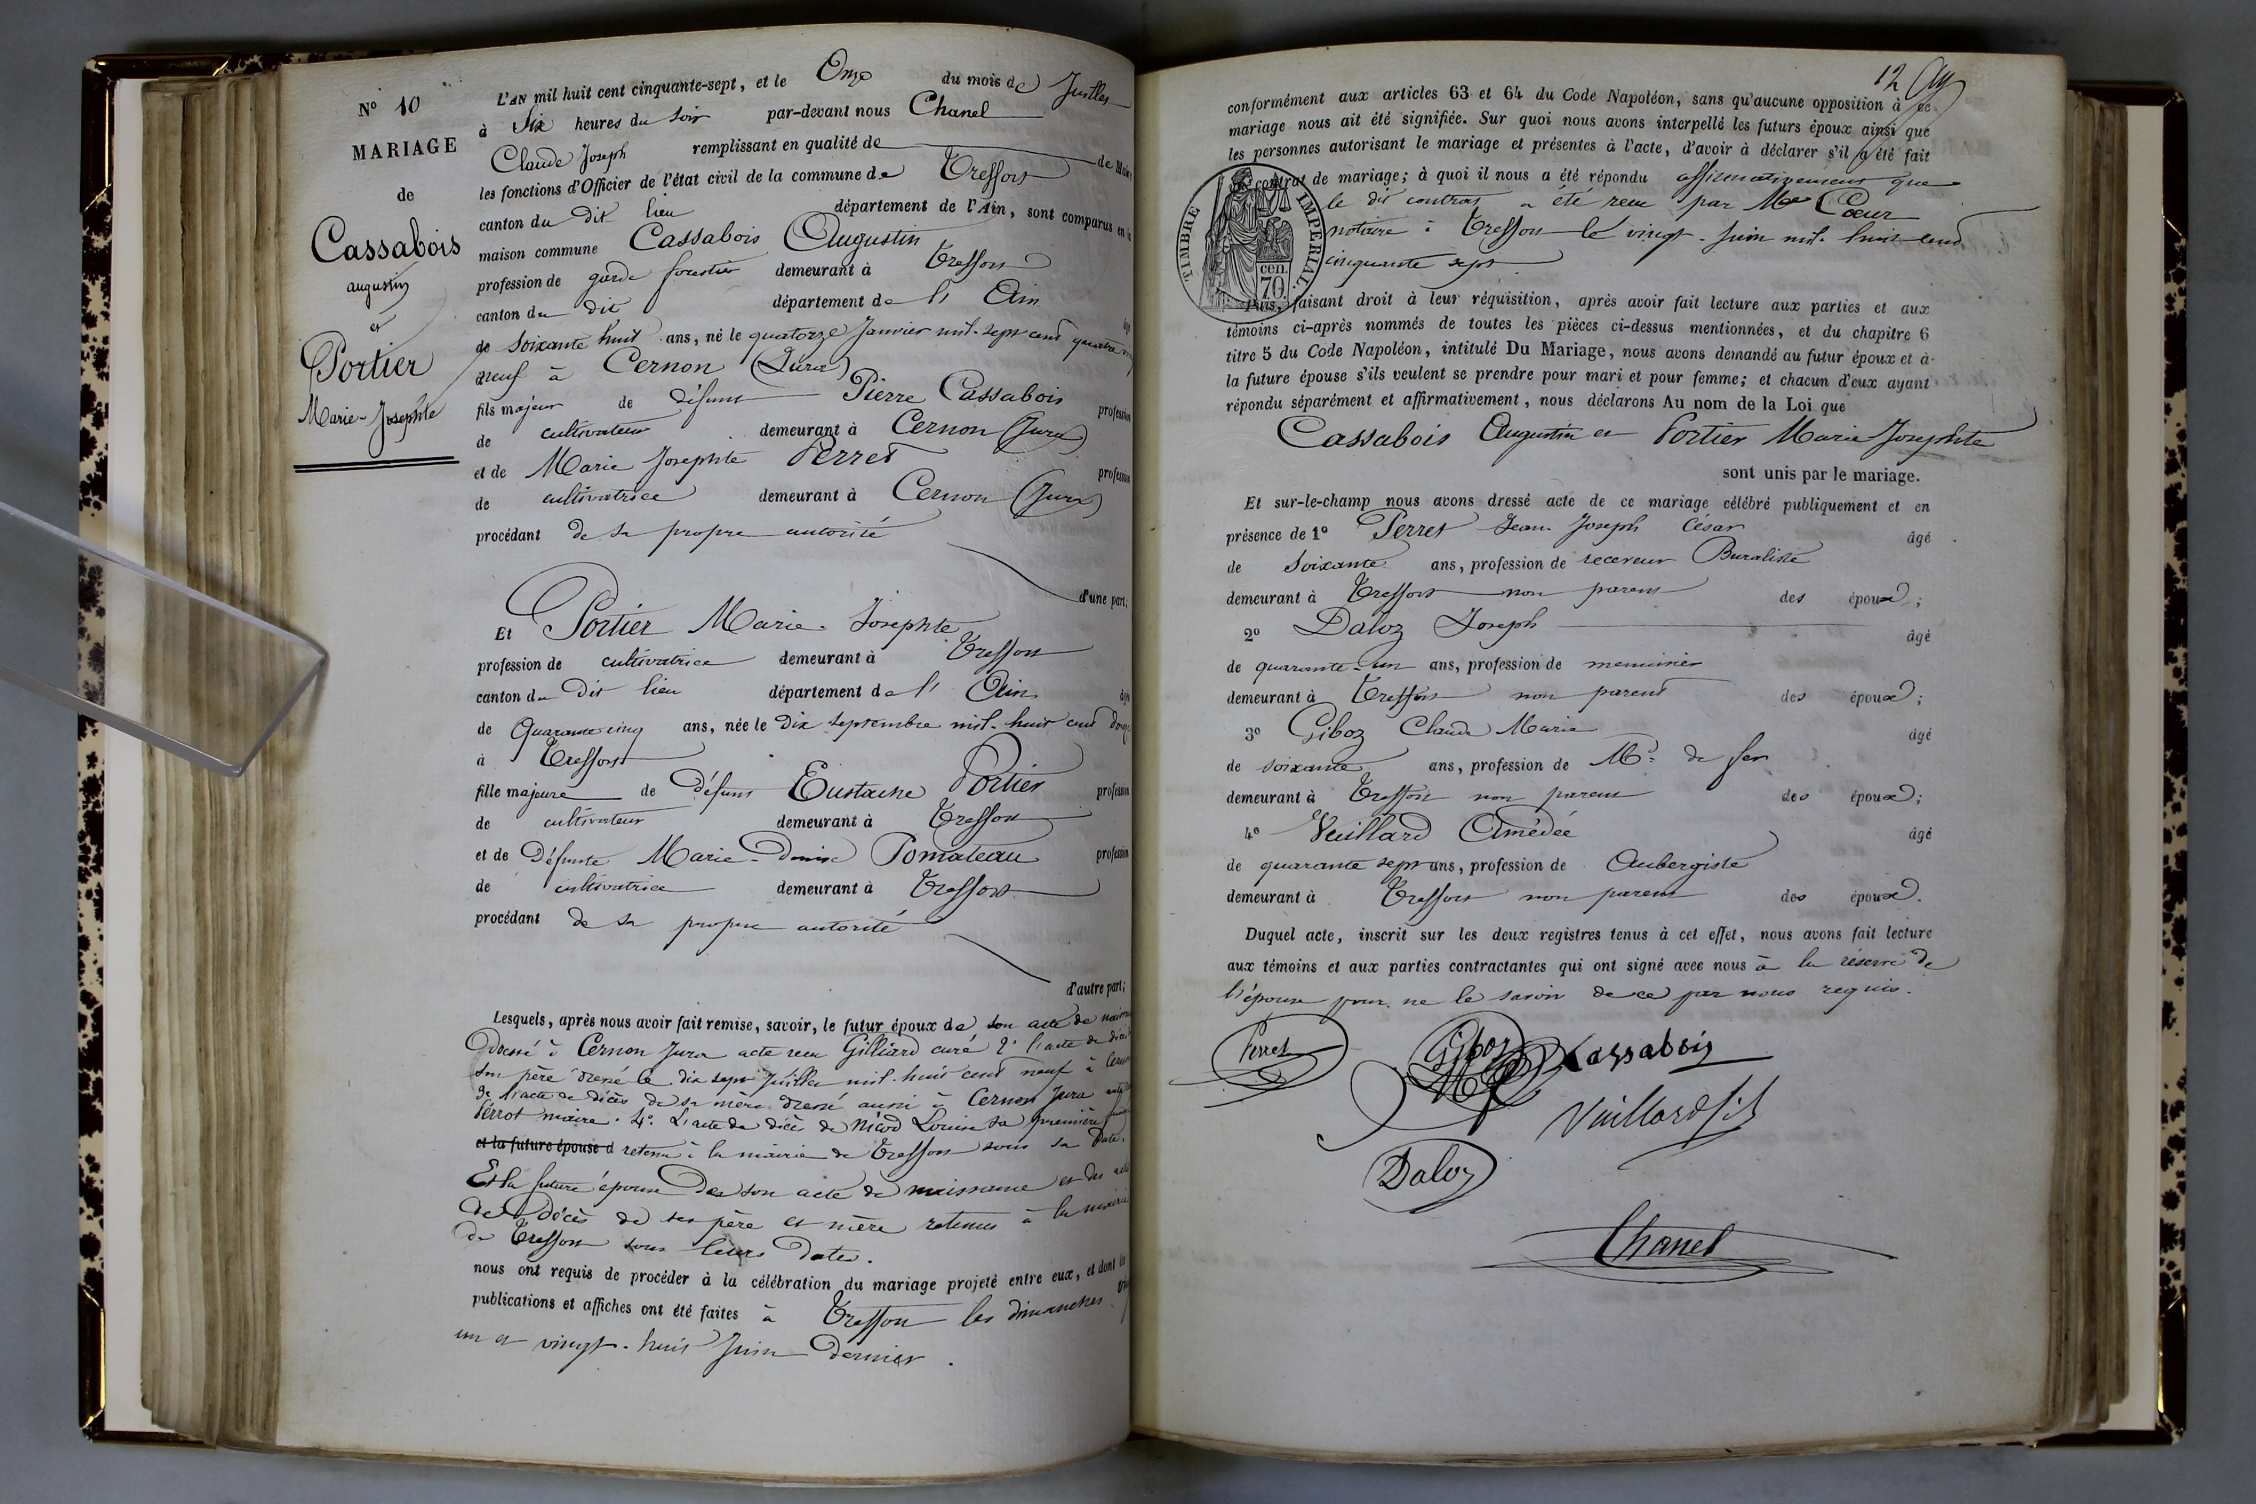 N° 10
MARIAGE
de
Cassabois
augustin
et
Portier
Marie-Josephte
L'AN mil huit cent cinquante-sept, et le Onze du mois de Juillet
à Six heures du soir par-devant nous Chanel
Claude Joseph remplissant en qualité de de Maire
les fonctions d'Officier de l'état civil de la commune de Treffort
canton du dit lieu département de l'Ain, sont comparus en la
maison commune Cassabois Augustin
profession de garde forestier demeurant à Treffort
canton du dit département de l' Ain âgé
de soixante huit ans, né le quatorze Janvier mil-sept cent quatre
neuf à Cernon (Jura)
fils majeur de défunt Pierre Cassabois profession
de cultivateur demeurant à Cernon (Jura)
et de Marie Josephte Perret profession
de cultivatrice demeurant à Cernon (Jura)
procédant de sa propre autorité
d'une part,
Et Portier Marie-Josephte
profession de cultivatrice demeurant à Treffort
canton du Dit lieu département de l' Ain âgée
de Quarante cinq ans, née le Dix septembre mil-huit cent douze
à Treffort
fille majeure de Défunt Eustache Portier profession
de cultivateur demeurant à Treffort
et de Défunte Marie-Denise Pomateau profession
de cultivatrice demeurant à Treffort
procédant de sa propre autorité
d'autre part;
Lesquels, après nous avoir fait remise, savoir, le futur époux de son acte de
Dressé à Cernon Jura acte reçu Gilliard curé 2° l'acte de
son père dressé le dix sept Juillet mil-huit cent neuf à
de l'acte de décès de sa mère dressé aussi à Cernon Jura
Perrot maire. 4° L'acte de décès de Nicod Louise sa première
et la future épouse d retenu à la mairie de Treffort sous sa date.
Et la future épouse De son acte de naissance et des
de décès de ses père et mère retenus à la mairie
de Treffort sous leurs dates.
nous ont requis de procéder à la célébration du mariage projeté entre eux, et dont les
publications et affiches ont été faites à Treffort les dimanches
un et vingt-huit Juin dernier.
12
conformément aux articles 63 et 64 du Code Napoléon, sans qu'aucune opposition à ce
mariage nous ait été signifiée. Sur quoi nous avons interpellé les futurs époux ainsi que
les personnes autorisant le mariage et présentes à l'acte, d'avoir à déclarer s'il a été fait
contrat de mariage; à quoi il nous a été répondu affirmativement que
le dit contrat a été reçu par Me Coeur
notaire à Treffort le vingt-Juin mil-huit cent
cinquante sept.
TIMBRE IMPÉRIAL
cen. 70.
Puis, faisant droit à leur réquisition, après avoir fait lecture aux parties et aux
témoins ci-après nommés de toutes les pièces ci-dessus mentionnées, et du chapitre 6
titre 5 du Code Napoléon, intitulé Du Mariage, nous avons demandé au futur époux et à
la future épouse s'ils veulent se prendre pour mari et pour femme; et chacun d'eux ayant
répondu séparément et affirmativement, nous déclarons Au nom de la Loi que
Cassabois Augustin et Portier Marie Josephte
sont unis par le mariage.
Et sur-le-champ nous avons dressé acte de ce mariage célébré publiquement et en
présence de 1° Perret Jean-Joseph César âgé
de Soixante ans, profession de receveur Buraliste
demeurant à Treffort non parent des époux;
2° Daloz Joseph âgé
de quarante-un ans, profession de menuisier
demeurant à Treffort non parent des époux;
3° Giboz Claude Marie âgé
de soixante ans, profession de Md de fer
demeurant à Treffort non parent des époux;
4° Vuillard Amédée âgé
de quarante sept ans, profession de Aubergiste
demeurant à Treffort non parent des époux.
Duquel acte, inscrit sur les deux registres tenus à cet effet, nous avons fait lecture
aux témoins et aux parties contractantes qui ont signé avec nous à la réserve de
l'épouse pour ne le savoir de ce par nous requis.
Perret
Giboz
Cassabois
Vuillard fils
Daloz
Chanel